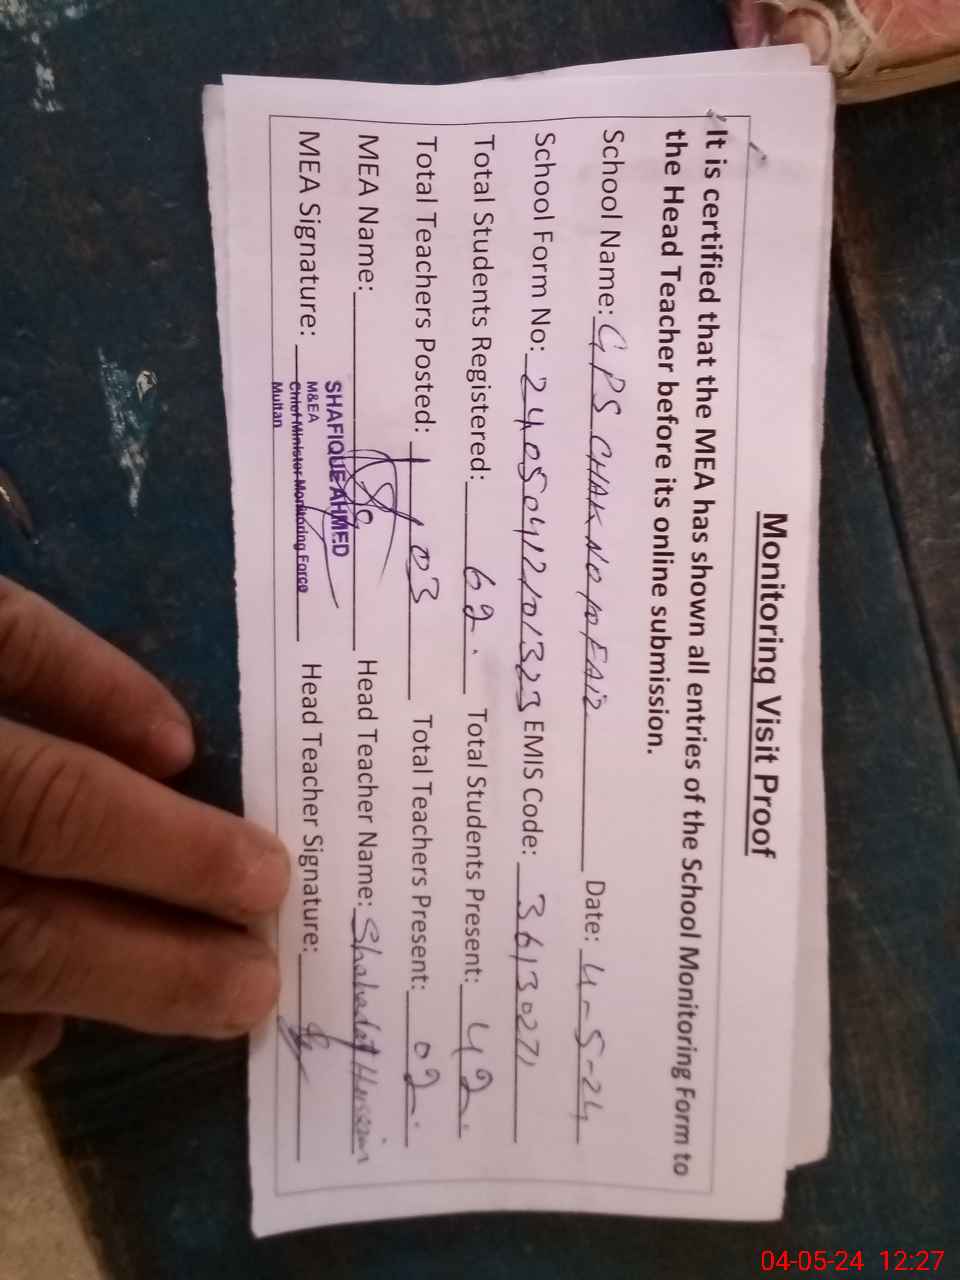 Monitoring Visit Proof
It is certified that the MEA has shown all entries of the School Monitoring Form to
the Head Teacher before its online submission.
School Name: GPS CHAK NO 10 FAIZ Date: 4-5-24
School Form No: 24050412101323 EMIS Code: 36130271
Total Students Registered: 62 Total Students Present: 42
Total Teachers Posted: 03 Total Teachers Present: 02
MEA Name: Head Teacher Name: Shahadat Hussain
SHAFIQUE AHMED
M&EA
Chief Minister Monitoring Force
Multan
MEA Signature: Head Teacher Signature:
04-05-24 12:27